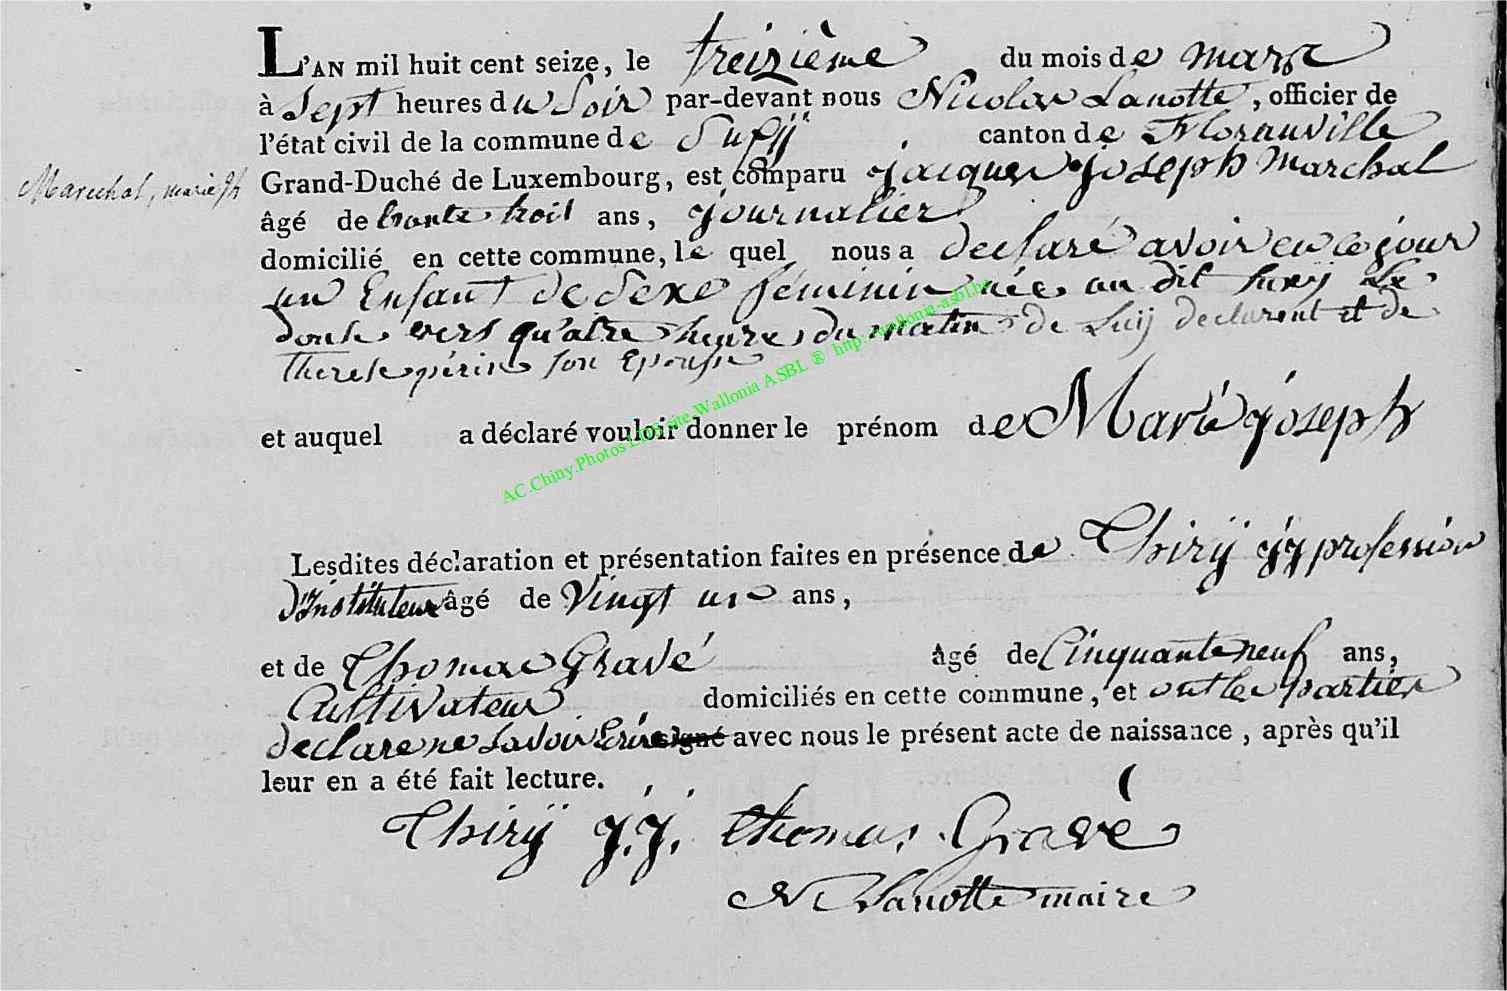 L'AN mil huit cent seize, le treizième du mois de mars
à Sept heures du Soir par-devant nous Nicolas Lanotte, officier de
l'état civil de la commune de Suxÿ canton de Florainville
Marechal, marie jh
Grand-Duché de Luxembourg, est comparu jacques joseph marchal
âgé de trente trois ans, journalier
domicilié en cette commune, le quel nous a declaré avoir eu ce jour
un Enfant de Sexe féminin née au dit Suxÿ le
douse vers quatre heures du matin de Luij declarent et de
Therese périn son Epouse
et auquel a déclaré vouloir donner le prénom de Marie joseph
AC.Chiny.Photos LDS site Wallonia ASBL ® http://wallonia-asbl.be
Lesdites déclaration et présentation faites en présence de Thirÿ j j profession
d'Instituteur âgé de Vingt un ans,
et de Thomas Gravé âgé de Cinquante neuf ans,
Cultivateur domiciliés en cette commune, et ont les parties
declare ne Savoir Ecrire signé avec nous le présent acte de naissance, après qu'il
leur en a été fait lecture.
Thirÿ j.j. thomas Gravé
N Lanotte maire